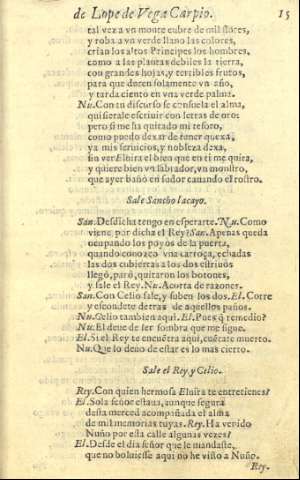 de Lope de Vega Carpio. 15
tal vez a vn monte cubre de mil flores,
y roba a vn verde llano las colores,
crian los altos Principes los hombres,
como a las plantas debiles la tierra,
con grandes hojas, y terribles frutos,
para que duren solamente vn año,
y tarda ciento en vna verde palma.
Nu. Con tu discurso se consuela el alma,
quisierale escriuir con letras de oro:
pero si me ha quitado mi tesoro,
como puedo dexar de tener quexa,
ya mis seruicios, y nobleza dexa,
sin ver Eluira el bien que en ti me quita,
y quiere bien vn labrador, vn monstro,
que ayer bañò en sudor cauando el rostro.
Sale Sancho lacayo.
San. Desdicha tengo en esperarte. Nu. Como
viene por dicha el Rey? San. Apenas queda
ocupando los poyos de la puerta,
quando conozco vna carroça, echadas
las dos cubiertas a los dos estriuos
llegò, parò, quitaron los botones,
y sale el Rey. Nu. Acorta de razones.
San. Con Celio sale, y suben los dos. El. Corre
y escondete detras de aquellos paños.
Nu. Celio tambien aqui. El. Pues q̃ remedio?
Nu. El deue de ser sombra que me sigue.
El. Si el Rey te encuẽtra aqui, cuẽtate muerto.
Nu. Que lo deuo de estar es lo mas cierto.
Sale el Rey, y Celio.
Rey. Con quien hermosa Eluira te entretienes?
El. Sola señor estaua, aunque segura
desta merced acompañada el alma
de mil memorias tuyas. Rey. Ha venido
Nuño por esta calle algunas vezes?
El. Desde el dia señor que le mandaste,
que no boluiesse aqui no he visto a Nuño.
Rey.